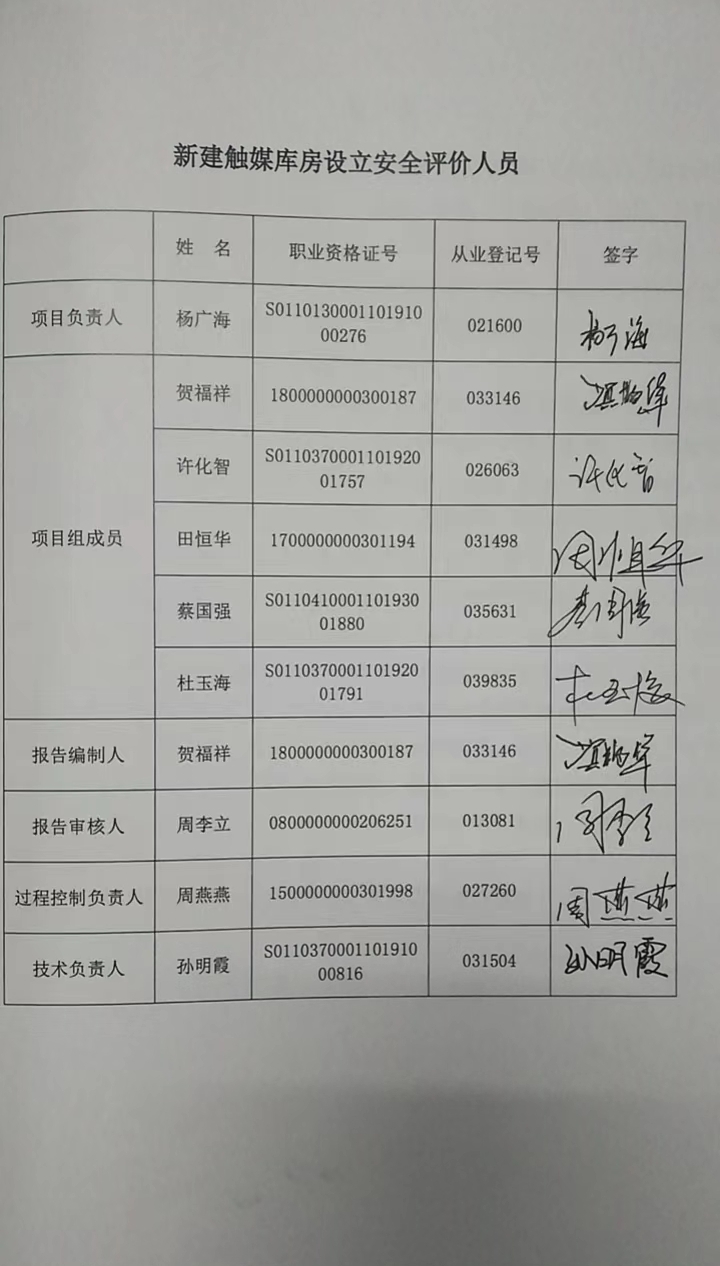 新建触媒库房设立安全评价人员
姓 名 职业资格证号 从业登记号 签字
项目负责人 杨广海 S011013000110191000276 021600 杨广海
项目组成员
贺福祥 1800000000300187 033146
许化智 S011037000110192001757 026063 许化智
田恒华 1700000000301194 031498 田恒华
蔡国强 S011041000110193001880 035631 蔡国强
杜玉海 S011037000110192001791 039835 杜玉海
报告编制人 贺福祥 1800000000300187 033146
报告审核人 周李立 0800000000206251 013081 周李立
过程控制负责人 周燕燕 1500000000301998 027260 周燕燕
技术负责人 孙明霞 S011037000110191000816 031504 孙明霞